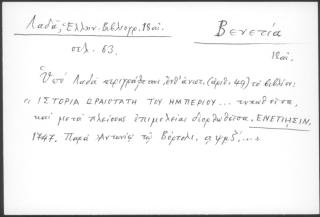 Λαδᾶ, Ἑλλην. Βιβλιογρ. 18 αἰ.
Βενετία
σελ. 63.
18 αἰ.
Ὑπὸ Λαδᾶ περιγράφεται, (ἀριθ. 49) τὸ βιβλίον:
ΙΣΤΟΡΙΑ ΩΡΑΙΟΤΑΤΗ ΤΟΥ ΗΜΠΕΡΙΟΥ... τυπωθεῖσα,
καὶ μετὰ πλείστης ἐπιμελείας διορθωθεῖσα. ΕΝΕΤΙΗΣΙΝ,
1747. Παρὰ Ἀντωνίῳ τῷ Βόρτολι. αψμζ΄...